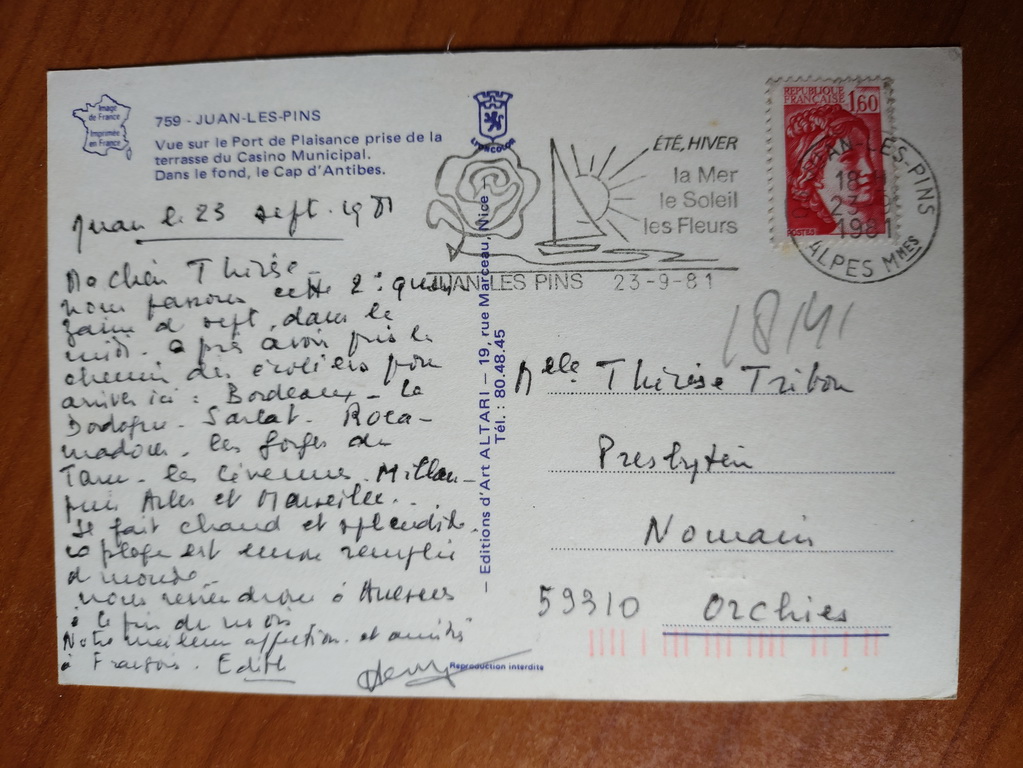 Image
de France
Imprimée
en France
759 - JUAN-LES-PINS
Vue sur le Port de Plaisance prise de la
terrasse du Casino Municipal.
Dans le fond, le Cap d'Antibes.
LYONCOLOR
ÉTÉ, HIVER
la Mer
le Soleil
les Fleurs
JUAN-LES PINS 23-9-81
REPUBLIQUE
FRANÇAISE 1,60
POSTES
JUAN-LES-PINS
18
23-9
1981
ALPES Mmes
Juan le 23 sept. 1981
Ma chère Thérèse
nous passons cette 2e quin-
zaine d sept. dans le
midi. après avoir pris le
chemin des écoliers pour
arriver ici : Bordeaux - la
Dordogne - Sarlat - Roca-
madour. les gorges du
Tarn. les Cévennes. Millau -
puis Arles et Marseille..
Il fait chaud et splendide.
la plage est encore remplie
d monde.
nous reviendrons à
à la fin de mois
Notre meilleure affection. et amitiés
à François. Edith
Reproduction interdite
- Editions d'Art ALTARI - 19, rue Marceau, Nice -
Tél. : 80.48.45
18141
Melle Thérèse
Nomain
59310 Orchies